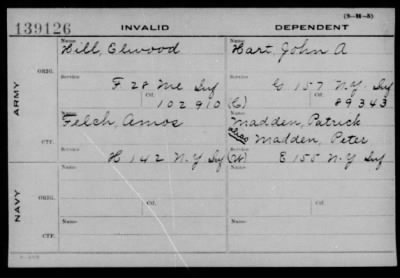 (3-M-5)
139126 INVALID DEPENDENT
Name Name
Hill, Elwood Hart, John A
ORIG.
Service Service
F 28 Me Inf G 157 N.Y. Inf
Ctf. Ctf.
102910 (C) 89343
ARMY
Name Name
Felch, Amos Madden, Patrick
alias Madden, Peter
CTF.
Service Service
H 142 N.Y Inf (W) E 155 N.Y Inf
Name Ctf. Name Ctf.
ORIG.
Service Service
NAVY
Name Name
CTF.
Service Service